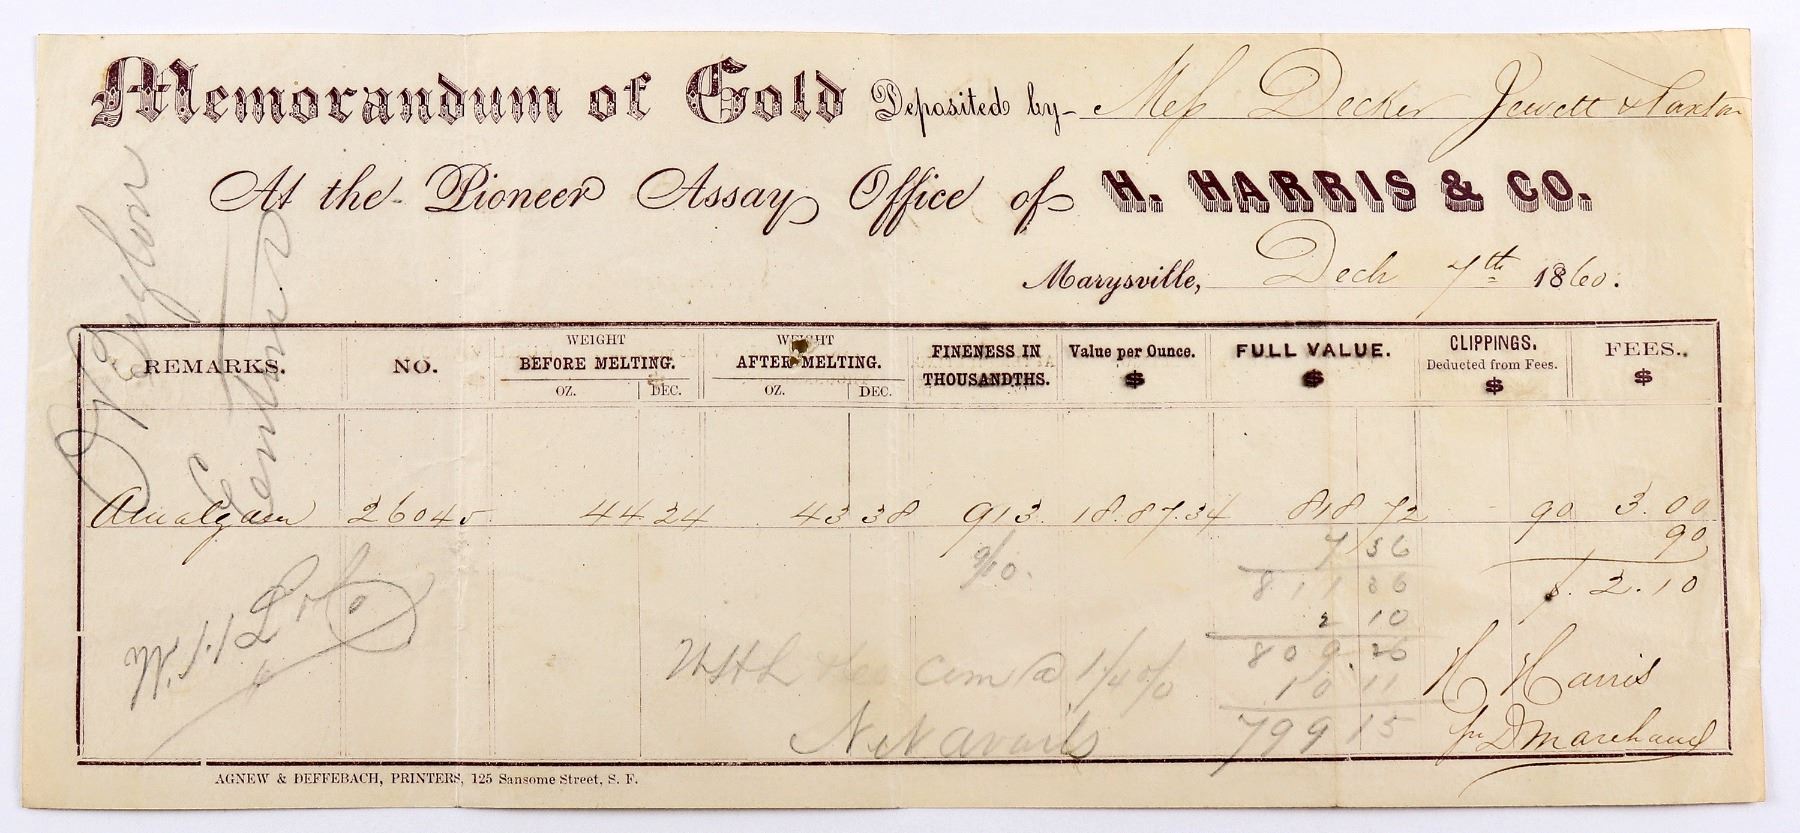 Memorandum of Gold Deposited by- Mess Decker Jewett & Paxton
At the Pioneer Assay Office of H. HARRIS & CO.
Marysville, Dech 7th 1860.
REMARKS. NO. WEIGHT BEFORE MELTING. OZ. DEC. WEIGHT AFTER MELTING. OZ. DEC. FINENESS IN THOUSANDTHS. Value per Ounce. $ FULL VALUE. $ CLIPPINGS. Deducted from Fees. $ FEES. $
Amalgam 26045 44 24 43 38 913 18.87.34 818 72 90 3.00
7 36 90
811 36 $. 2.10
2 10
809.26
W.H.L & Co
WHL Com @ 1 1/4 %
10 11
Net avails 799 15
H Harris
pr D Marchand
Taylor
AGNEW & DEFFEBACH, PRINTERS, 125 Sansome Street, S. F.